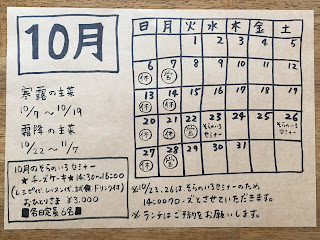 10月
寒露の主菜
10/7〜10/19
霜降の主菜
10/22〜11/7
10月のそらのいろセミナー
★チーズケーキ★14:30〜16:00
(レシピ代、レッスン代、試食、ドリンク付)
おひとりさま ¥3,000
■各日定員6名■
日 月 火 水 木 金 土
1 2 3 4 5
6 7 8 9 10 11 12
休 営
13 14 15 16 17 18 19
休 休
20 21 22 23 24 25 26
休 休 営 そらのいろセミナー そらのいろセミナー
27 28 29 30 31
休 営
※10/23.26は、そらのいろセミナーのため、
14:00クローズとさせていただきます。
※ランチはご予約をお願いします。